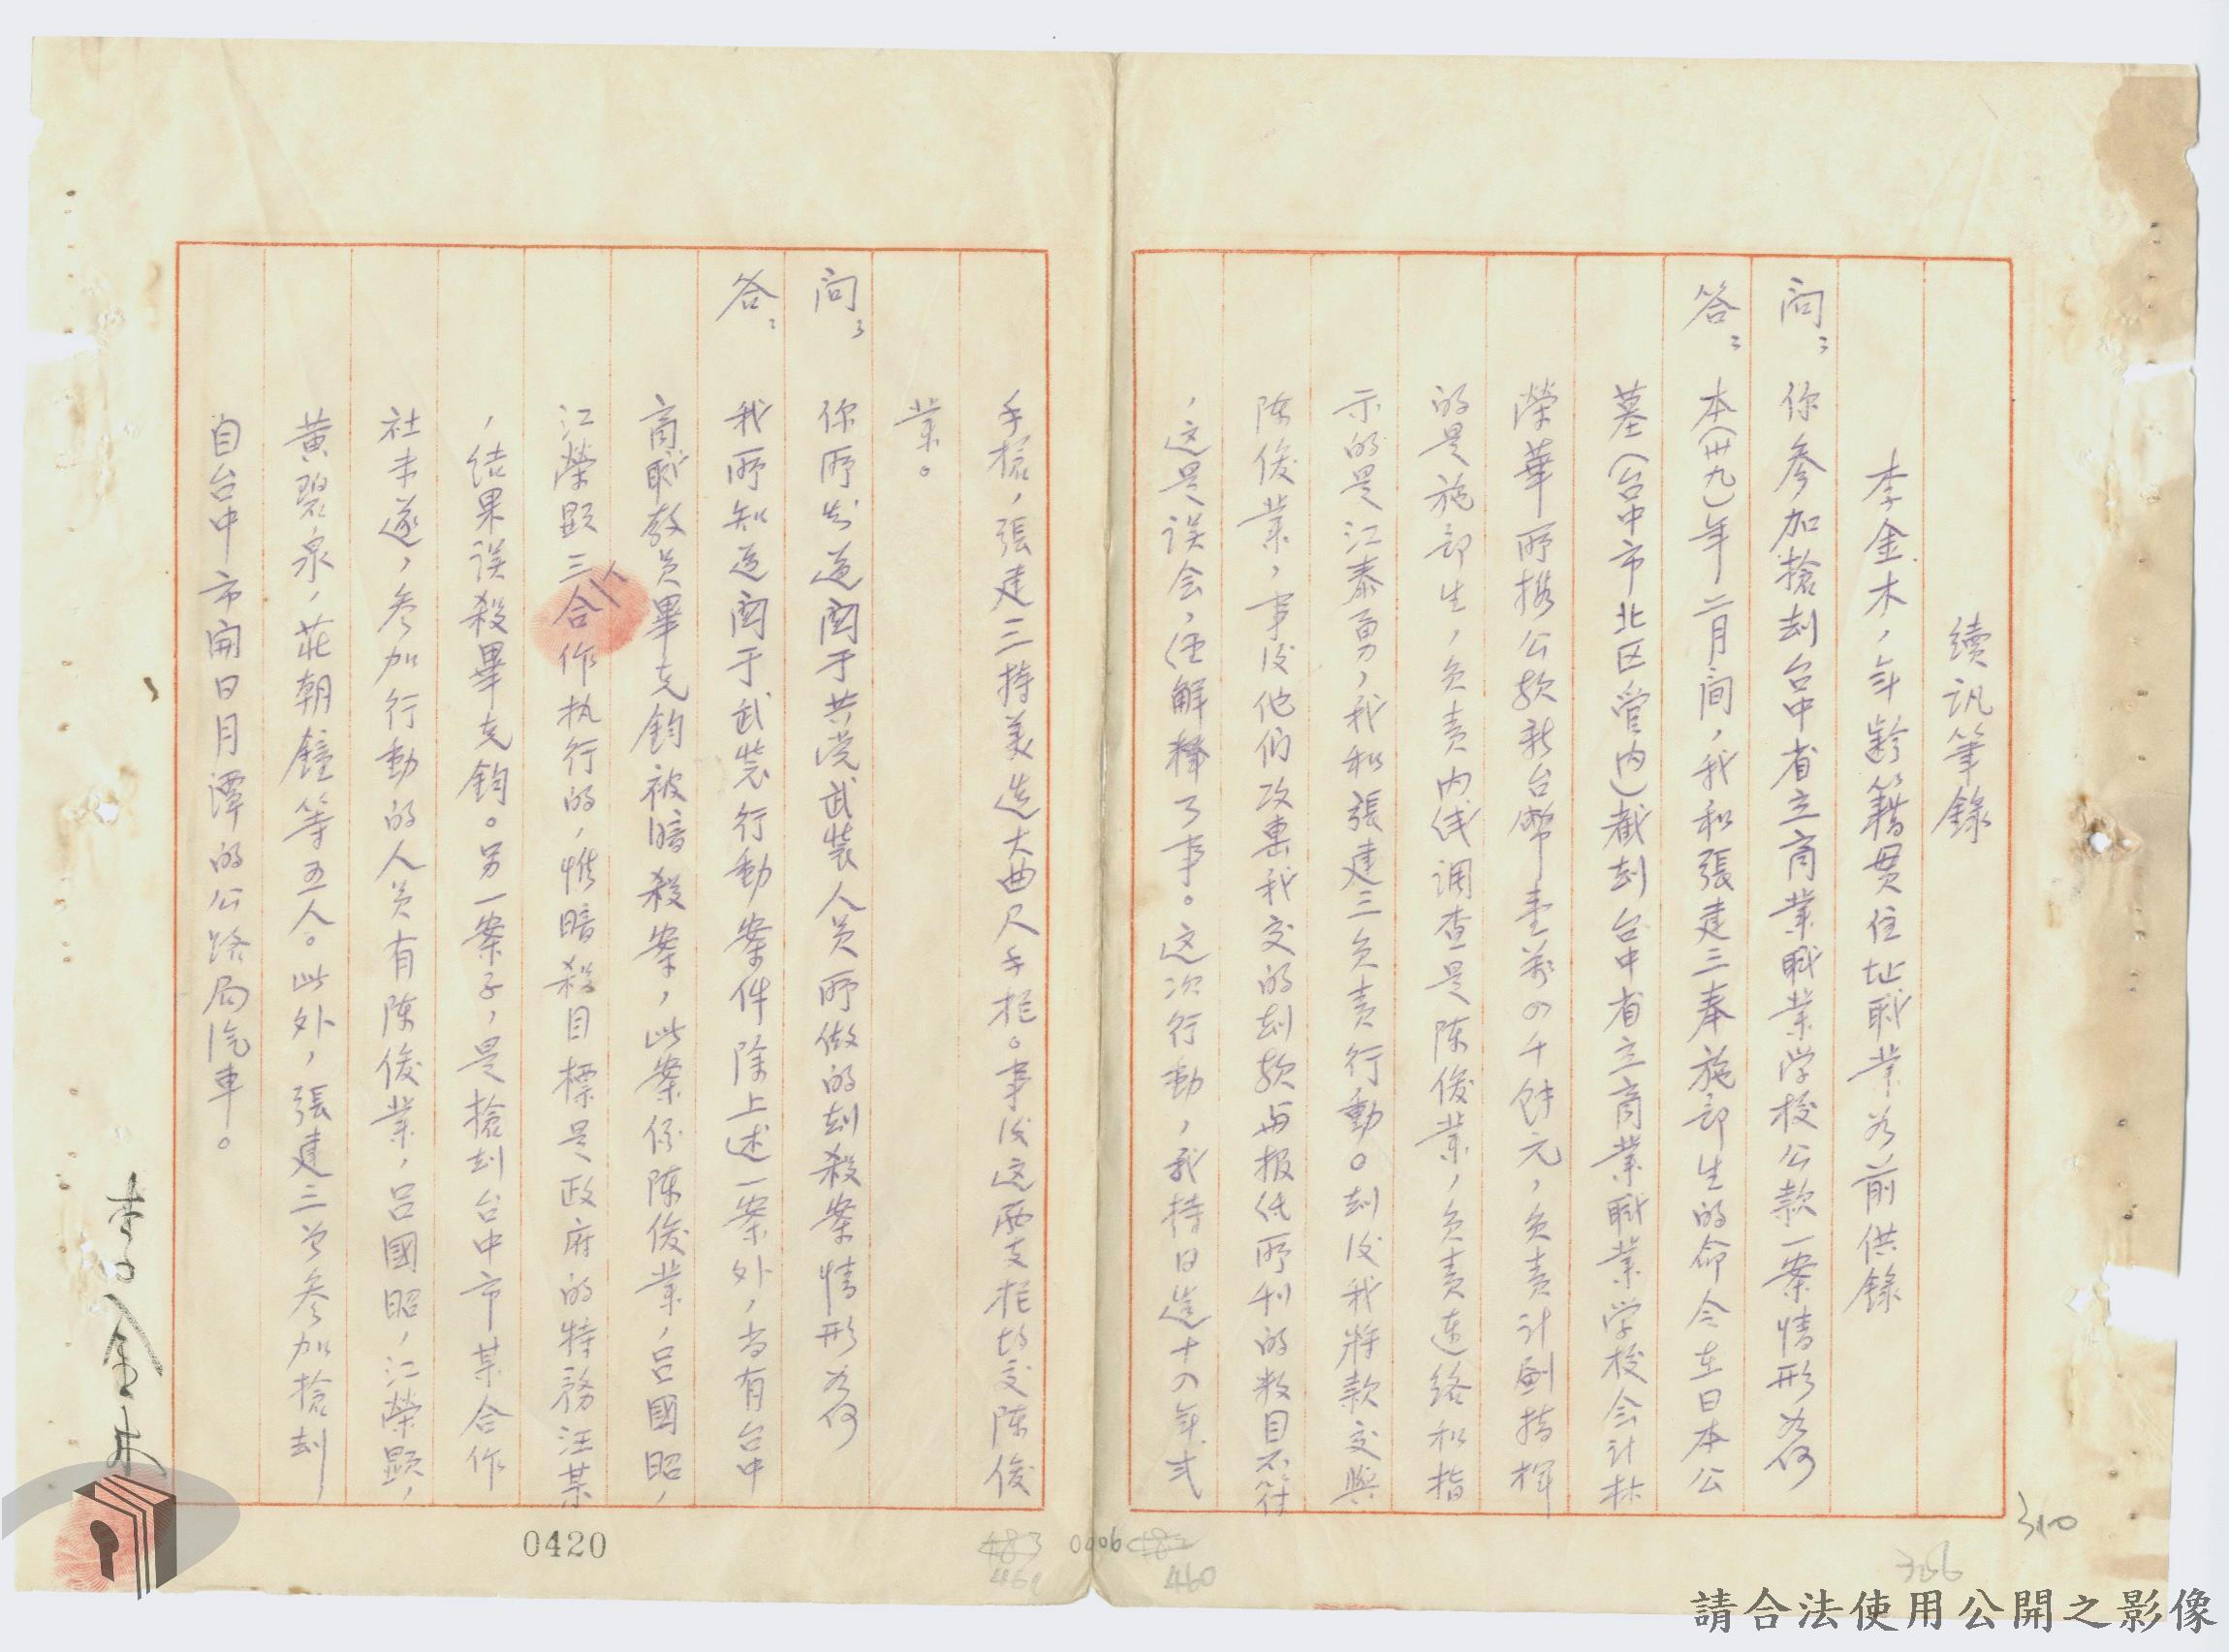 續訊筆錄
李金木,年齡籍貫住址职業如前供錄
问:你參加搶刦台中省立商業职業学校公款一案情形如何
答:本(卅九)年二月间,我和張建三奉施部生的命令在日本公
墓(台中市北区管内)截刦台中省立商業职業学校会计林
榮華所携公款新台幣壹萬四千餘元,负责计劃指揮
的是施部生,负责内线调查是陈俊業,负责连络和指
示的是江泰勇,我和張建三负责行動。刦后我将款交與
陈俊業,事后他们攻击我交的刦款与报纸所刊的数目不符
,这是误会,经解释了事。这次行動,我持日造十四年式
手槍,張建三持美造大曲尺手枪。事后这两支枪均交陈俊
業。
问:你所知道関于共党武裝人员所做的刦殺案情形如何
答:我所知道関于武裝行動案件除上述一案外,尚有台中
商职教员畢克鈞被暗殺案,此案係陈俊業,呂國昭,
江榮顯三人合作执行的,惟暗殺目標是政府的特務汪某
,结果误殺畢克鈞。另一案子,是搶刦台中市某合作
社未遂,参加行動的人员有陈俊業,呂國昭,江榮顯,
黄碧泉,莊朝鐘等五人。此外,張建三曾参加搶刦
自台中市開日月潭的公路局汽車。
李金木
0420
483
0006
460
310
請合法使用公開之影像